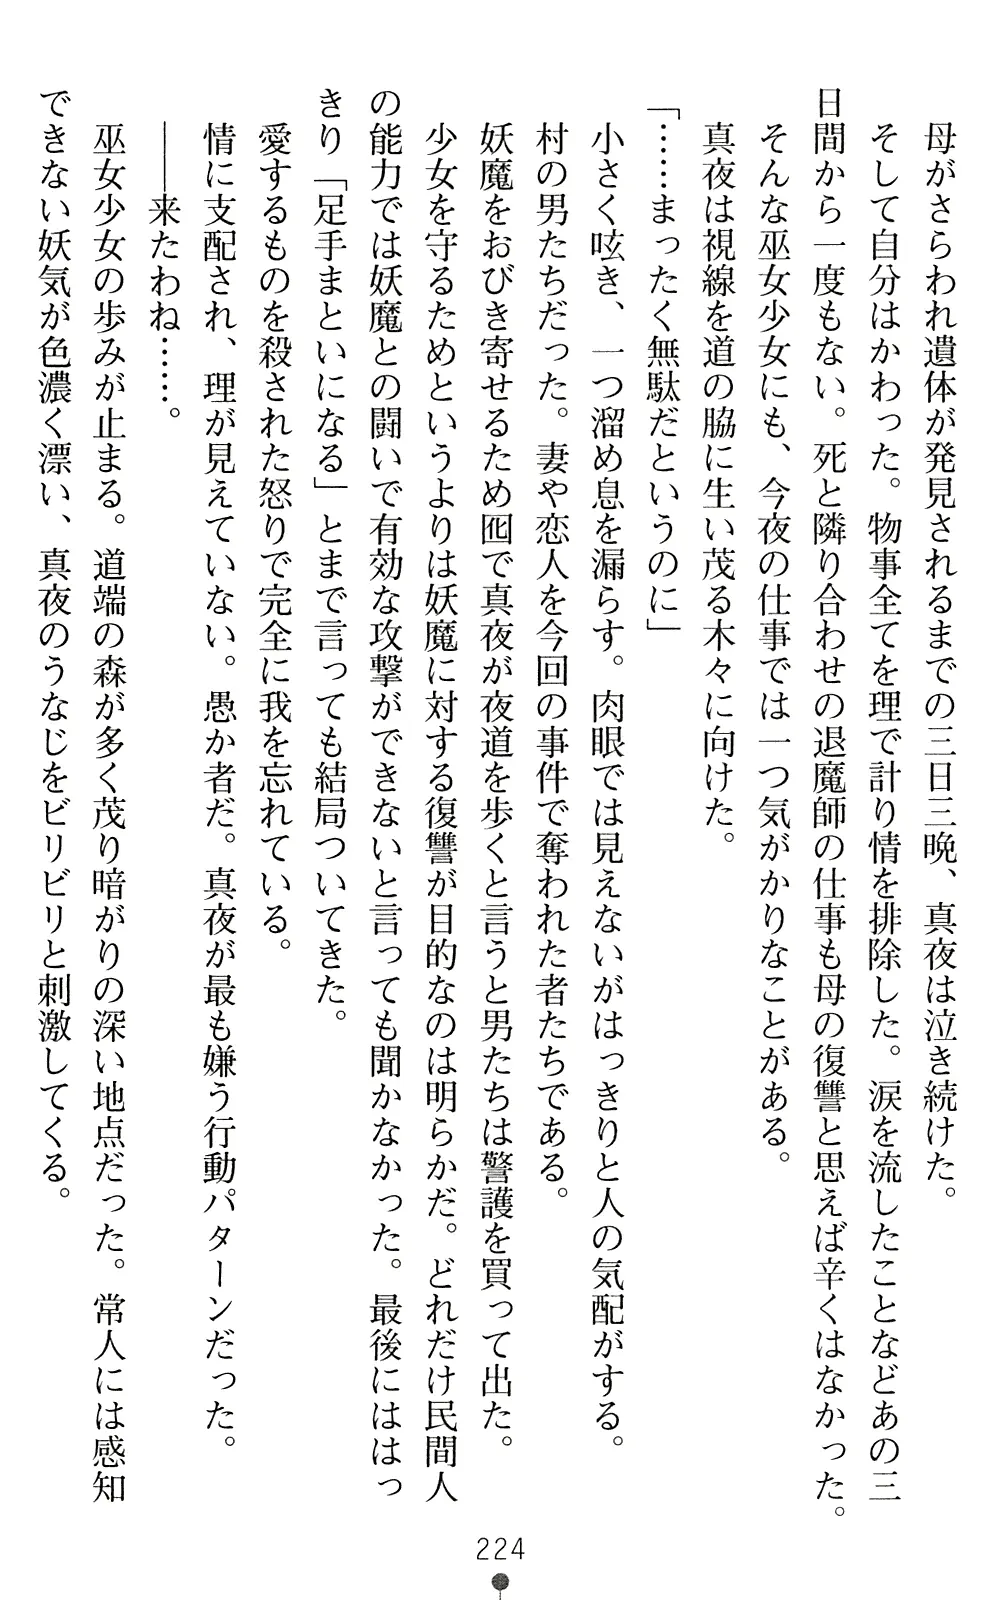 母がさらわれ遺体が発見されるまでの三日三晩、真夜は泣き続けた。
そして自分はかわった。物事全てを理で計り情を排除した。涙を流したことなどあの三
日間から一度もない。死と隣り合わせの退魔師の仕事も母の復讐と思えば辛くはなかった。
そんな巫女少女にも、今夜の仕事では一つ気がかりなことがある。
真夜は視線を道の脇に生い茂る木々に向けた。
「……まったく無駄だというのに」
小さく呟き、一つ溜め息を漏らす。肉眼では見えないがはっきりと人の気配がする。
村の男たちだった。妻や恋人を今回の事件で奪われた者たちである。
妖魔をおびき寄せるため囮で真夜が夜道を歩くと言うと男たちは警護を買って出た。
少女を守るためというよりは妖魔に対する復讐が目的なのは明らかだ。どれだけ民間人
の能力では妖魔との闘いで有効な攻撃ができないと言っても聞かなかった。最後にははっ
きり「足手まといになる」とまで言っても結局ついてきた。
愛するものを殺された怒りで完全に我を忘れている。
情に支配され、理が見えていない。愚か者だ。真夜が最も嫌う行動パターンだった。
――来たわね……。
巫女少女の歩みが止まる。道端の森が多く茂り暗がりの深い地点だった。常人には感知
できない妖気が色濃く漂い、真夜のうなじをビリビリと刺激してくる。
224